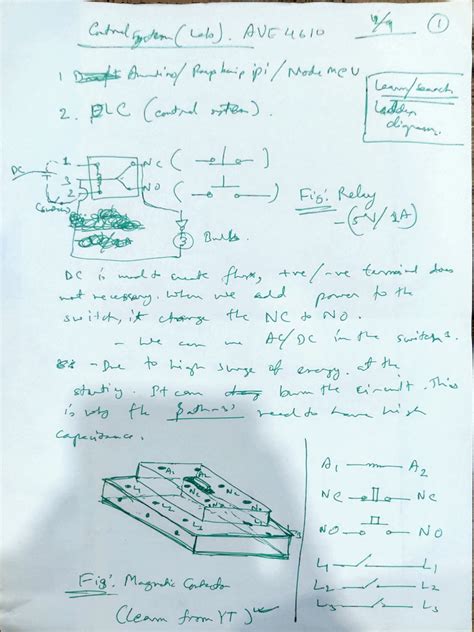 Control System (Lab). AVE 4610
①
1. Arduino/Raspberry pi/Node MCU
Learn/search
Ladder
diagram.
2. PLC (control system).
DC
1
NC (
3
2
NO (
Fig: Relay
(5V/1A)
3
Bulb.
DC is used to create flux, +ve/-ve terminal does
not necessary. When we add power to the
switch, it change the NC to NO.
- We can use AC/DC in the switch.
- Due to high surge of energy. at the
starting. It can burn the circuit. This
is why the need to have high
capacitance.
A1
A2
NC
NC
NO
NO
L1
L2
L3
A1 A2
NC NC
NO NO
L1 L1
L2 L2
L3 L3
Fig: Magnetic Contactor
(learn from YT)